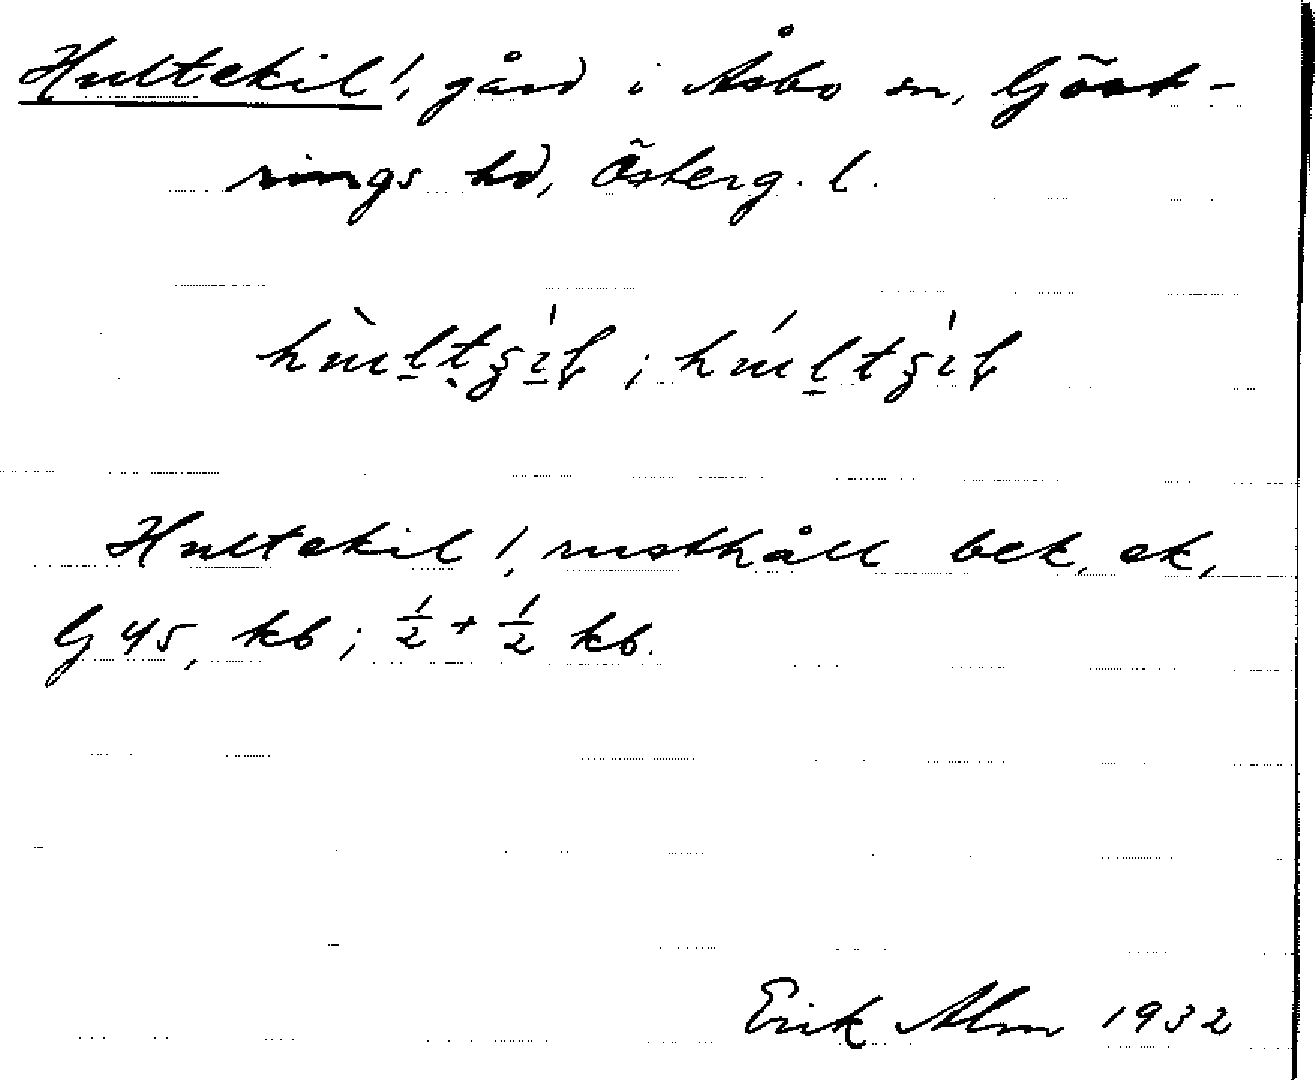 Hultekil!, gård i Åsbo sn, Göst-
rings hd, Österg. l.
Hultekil!, rusthåll bek. ek.,
G 45, kb; ½ + ½ kb.
Erik Alm 1932